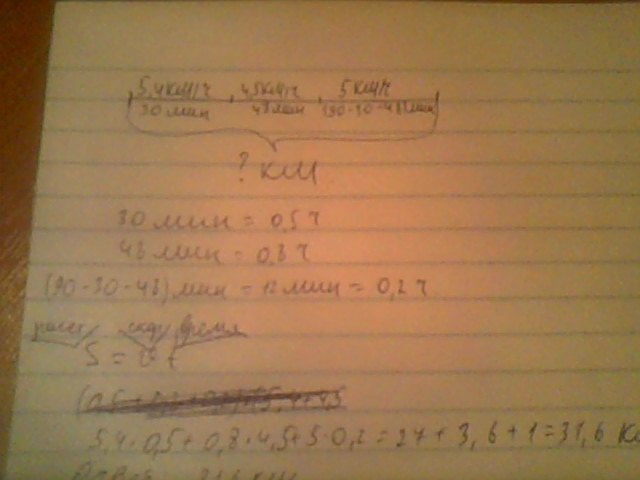 5,4 км/ч 4,5 км/ч 5 км/ч
30 мин 48 мин (90-30-48) мин
? км
30 мин = 0,5 ч
48 мин = 0,8 ч
(90-30-48) мин = 12 мин = 0,2 ч
расст. время
S = v t
5,4 · 0,5 + 0,8 · 4,5 + 5 · 0,2 = 27 + 3,6 + 1 = 31,6 км
31,6 км